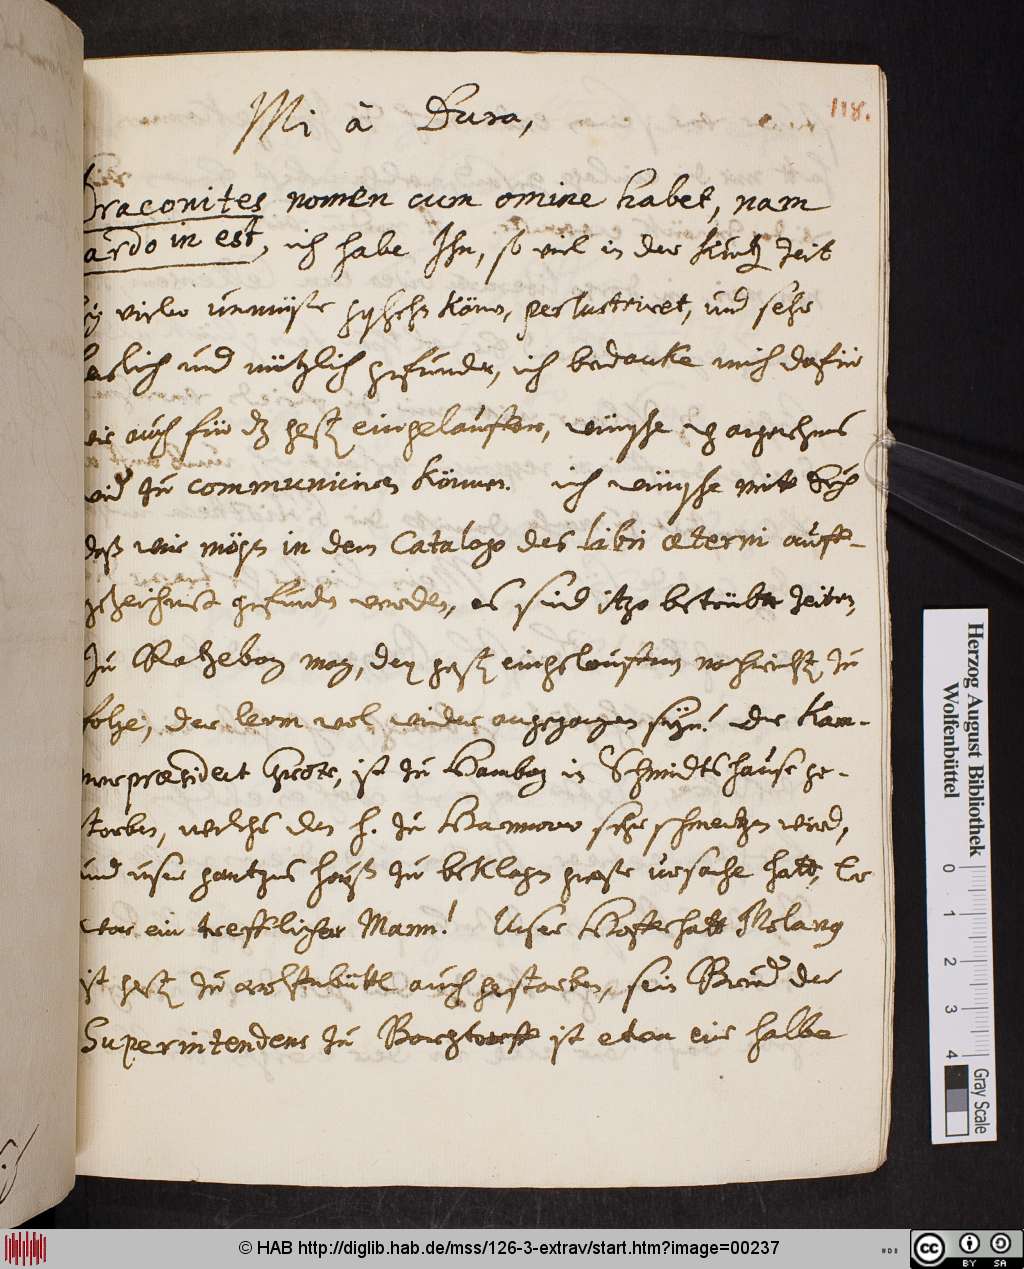 118.
Mi à Dura,
Draconites nomen cum omine habet, nam
ardo in est, ich habe Ihn, so viel in der Kurtz Zeit
viele unmüße können, perlustriret, und sehr
und nützlich gefunden, ich bedancke mich dafür
auch für dz gest eingelauffene, wünsche
wied zu communiciren können. ich wünsche mitt
daß wir mögen in dem Catalogo des libri æterni auff-
gezeichnet gefunden werden, es sind itzo betrübte Zeiten,
Zu Ratzeborg mag, den gest eingelauffenen nachricht zu
folge, der lerm wol wieder angegangen seyn! Der Kam-
merpræsident Grote, ist zu Hamborg in Schmidts hause ge-
storben, welches den H. zu Hannover sehr schmertzen wird,
und unser gantzes hauß zu beklagen große ursache hatt, Er
war ein trefflicher Mann! Unser
ist gest zu wolffenbüttel auch gestorben, sein Brud der
Superintendens zu ist etwa eine halbe
Herzog August Bibliothek
Wolfenbüttel
0 1 2 3 4
Gray Scale
© HAB http://diglib.hab.de/mss/126-3-extrav/start.htm?image=00237
HAB
cc BY SA